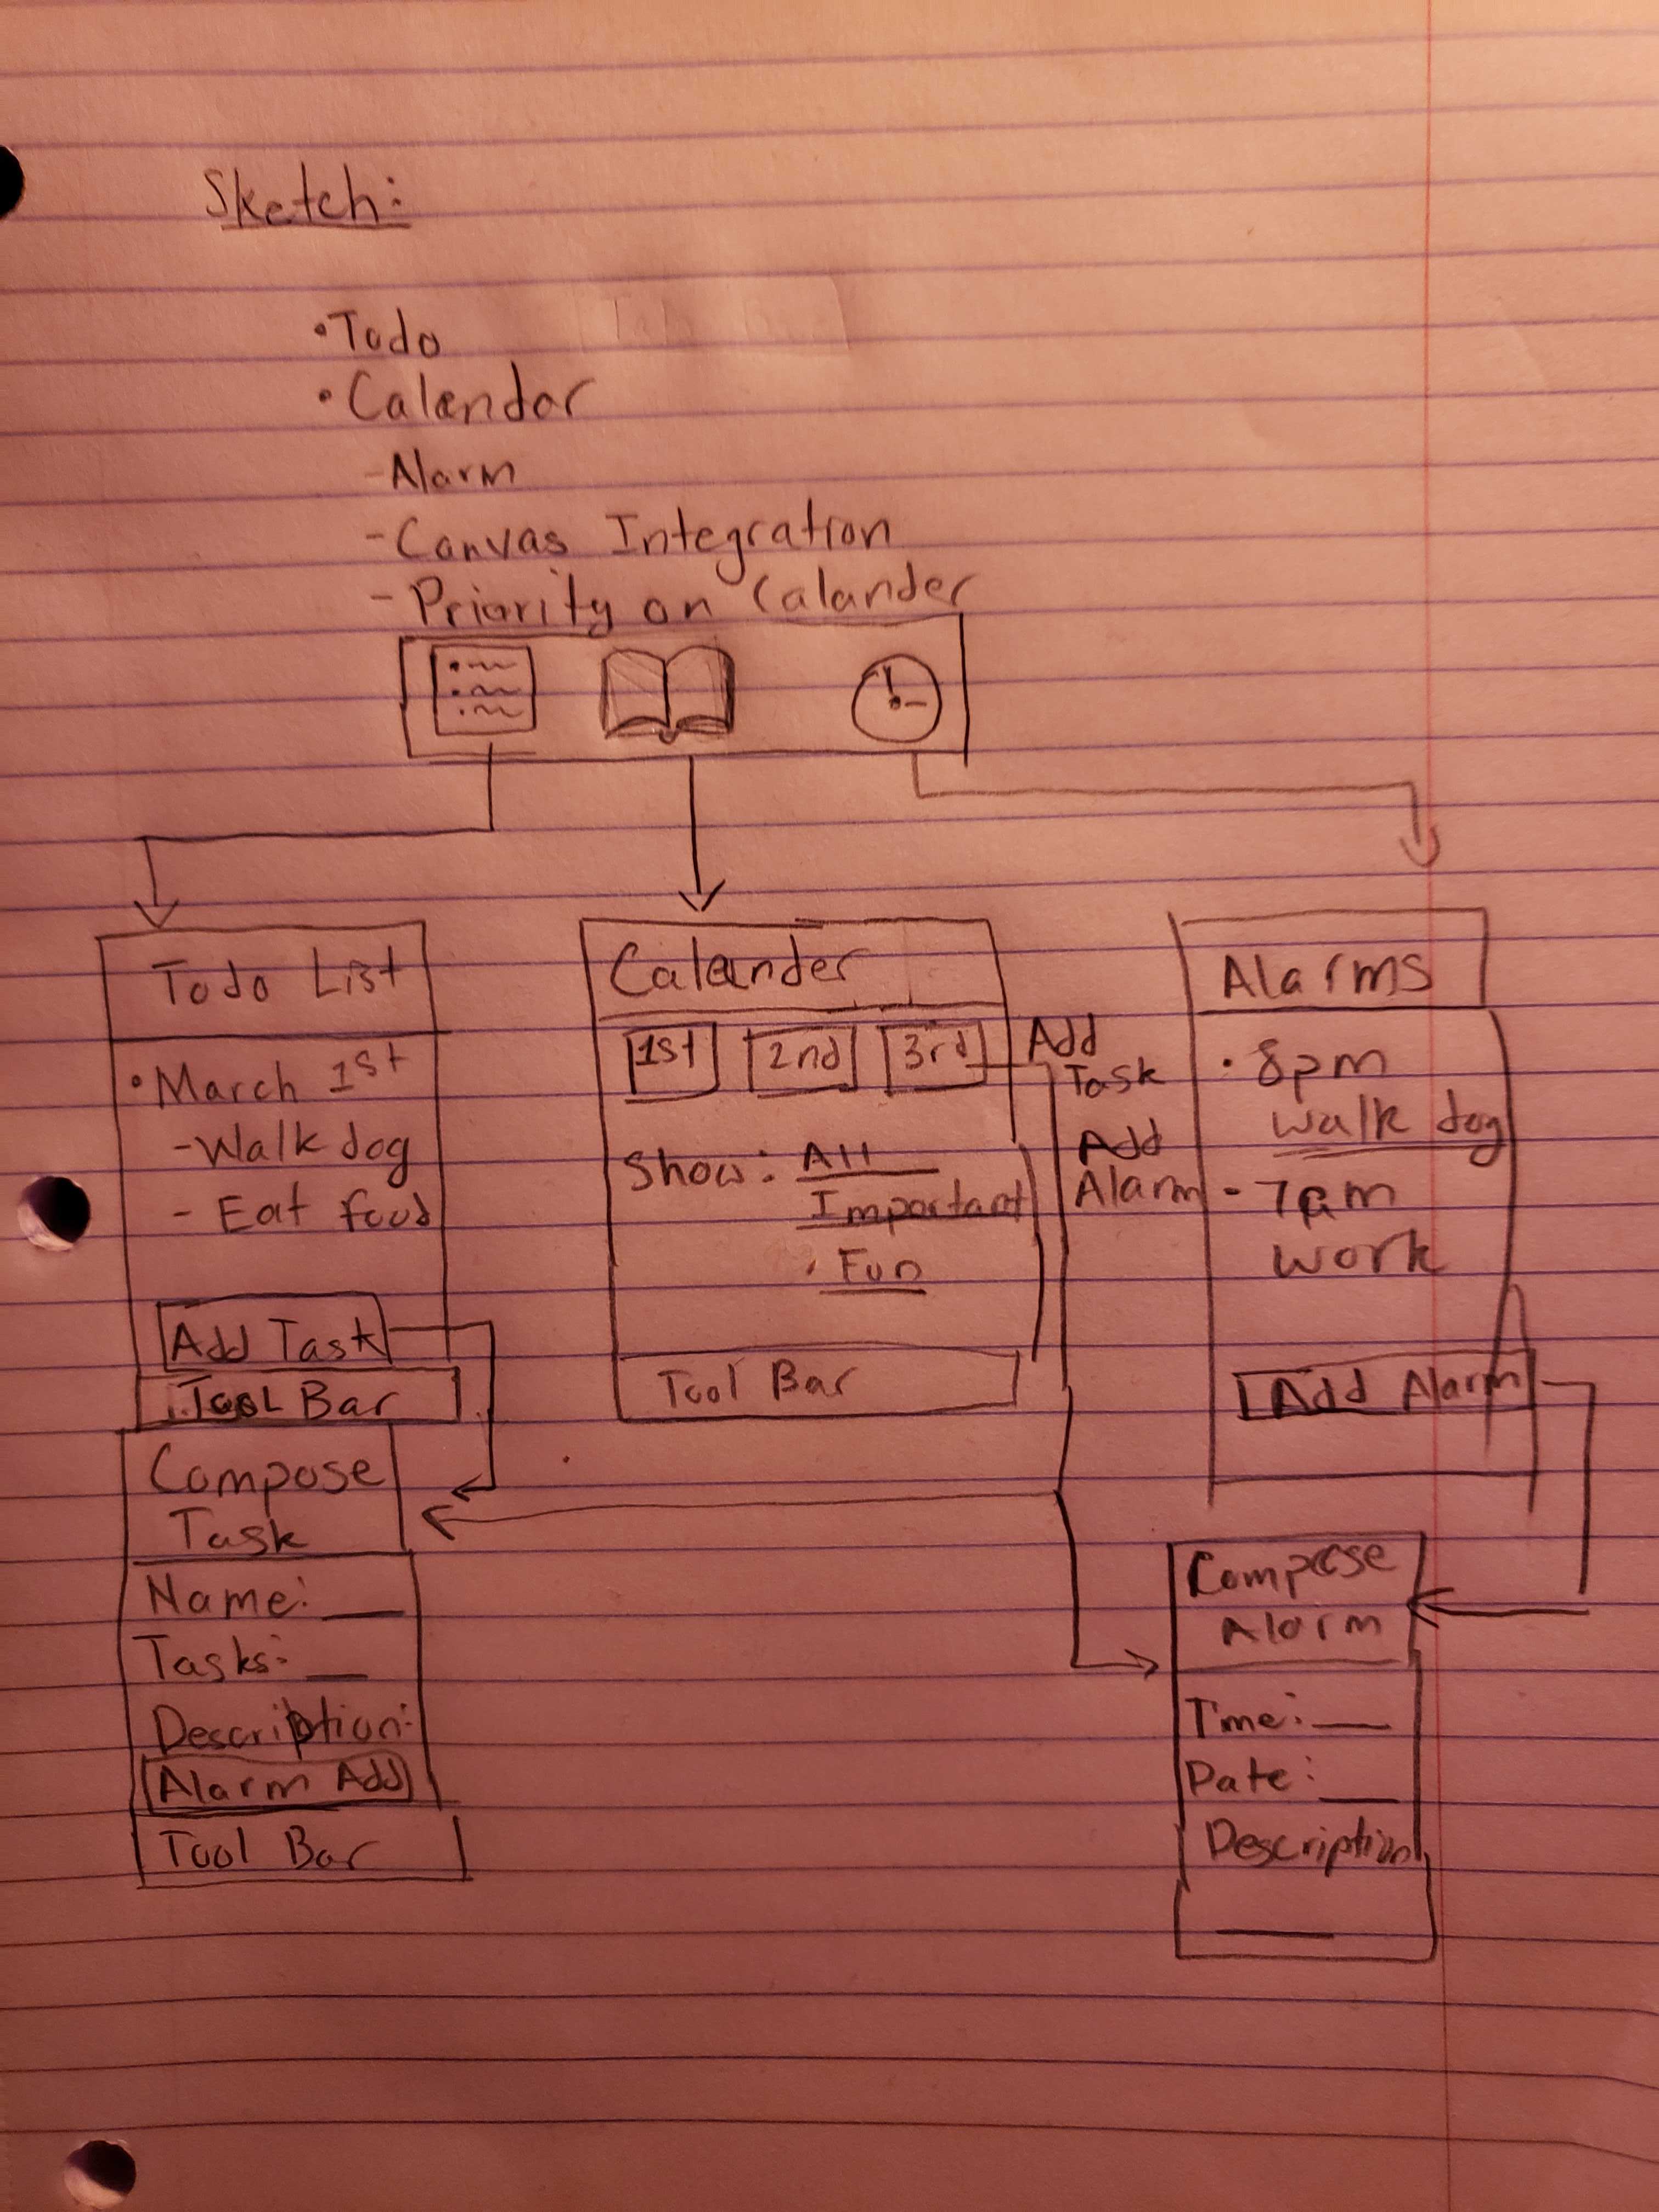 Sketch:
•Todo
•Calendar
-Alarm
-Canvas Integration
-Priority on Calander
Todo List
•March 1st
-Walk dog
- Eat food
Add Task
Tool Bar
Compose
Task
Name: ___
Tasks: __
Description:
Alarm Add
Tool Bar
Calander
1st 2nd 3rd
Show: All
Important
• Fun
Tool Bar
Add
Task
Add
Alarm
Alarms
• 8pm
walk dog
- 7am
work
Add Alarm
Compose
Alarm
Time: ___
Date: ___
Description